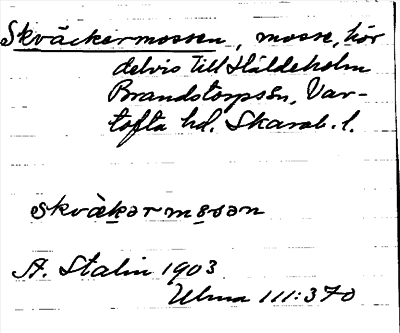 Skväckermossen, mosse, hör
delvis till Häldeholm
Brandstorps sn, Var-
tofta hd. Skarab. l.
skväkərmosən
A. Stalin 1903
Ulma 111:370